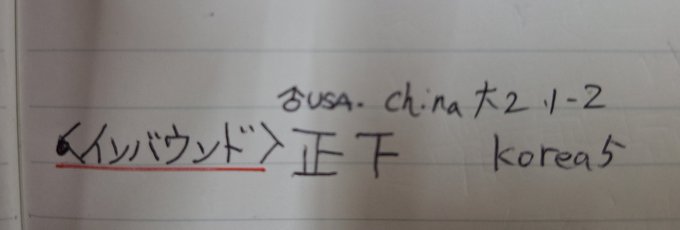 USA. china 大2.1-2
<インバウンド> 正下 korea5